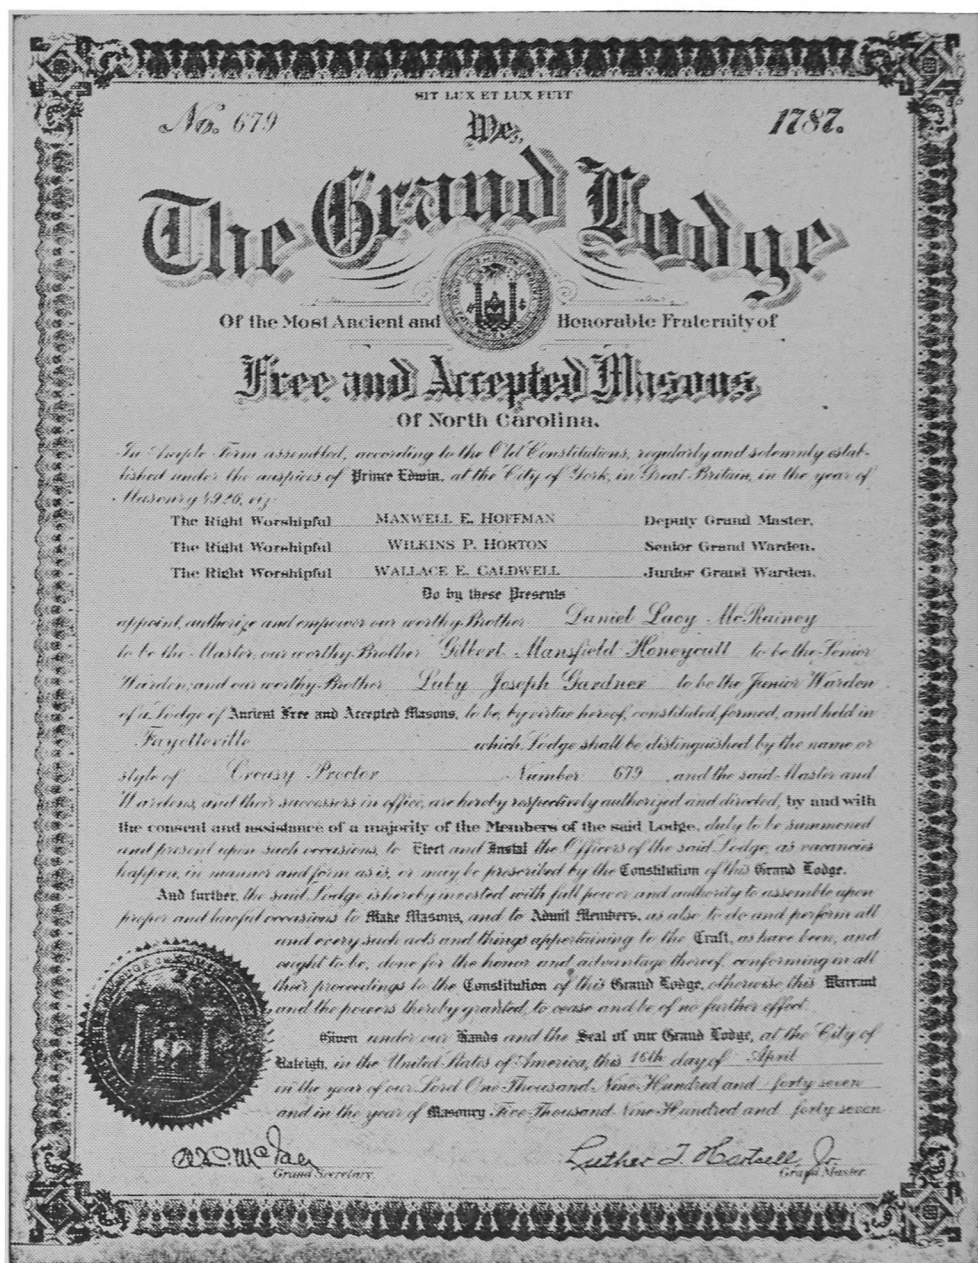 SIT LUX ET LUX FUIT
No. 679
We,
1787.
The Grand Lodge
Of the Most Ancient and Honorable Fraternity of
Free and Accepted Masons
Of North Carolina.
In Ample Form assembled, according to the Old Constitutions, regularly and solemnly estab-
lished under the auspices of Prince Edwin, at the City of York, in Great Britain, in the year of
Masonry 4926, viz:
The Right Worshipful MAXWELL E. HOFFMAN Deputy Grand Master,
The Right Worshipful WILKINS P. HORTON Senior Grand Warden,
The Right Worshipful WALLACE E. CALDWELL Junior Grand Warden,
Do by these Presents
appoint, authorize and empower our worthy Brother Daniel Lacy McRainey
to be the Master; our worthy Brother Gilbert Mansfield Honeycutt to be the Senior
Warden; and our worthy Brother Luby Joseph Gardner to be the Junior Warden
of a Lodge of Ancient Free and Accepted Masons, to be, by virtue hereof, constituted, formed, and held in
Fayetteville which Lodge shall be distinguished by the name or
style of Creasy Proctor Number 679, and the said Master and
Wardens, and their successors in office, are hereby respectively authorized and directed, by and with
the consent and assistance of a majority of the Members of the said Lodge, duly to be summoned
and present upon such occasions, to Elect and Instal the Officers of the said Lodge, as vacancies
happen, in manner and form as is, or may be prescribed by the Constitution of this Grand Lodge.
And further, the said Lodge is hereby invested with full power and authority to assemble upon
proper and lawful occasions to Make Masons, and to Admit Members, as also to do and perform all
and every such acts and things appertaining to the Craft, as have been, and
ought to be, done for the honor and advantage thereof, conforming in all
their proceedings to the Constitution of this Grand Lodge, otherwise this Warrant
and the powers thereby granted, to cease and be of no further effect.
Given under our Hands and the Seal of our Grand Lodge, at the City of
Raleigh, in the United States of America, this 16th day of April
in the year of our Lord One Thousand Nine Hundred and forty seven
and in the year of Masonry Five Thousand Nine Hundred and forty seven
Luther T. Hartsell, Jr.
Grand Secretary.
Grand Master.